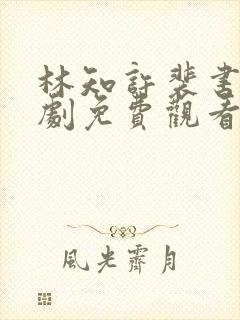 林知許裴書
劇免費觀看
風光霽月